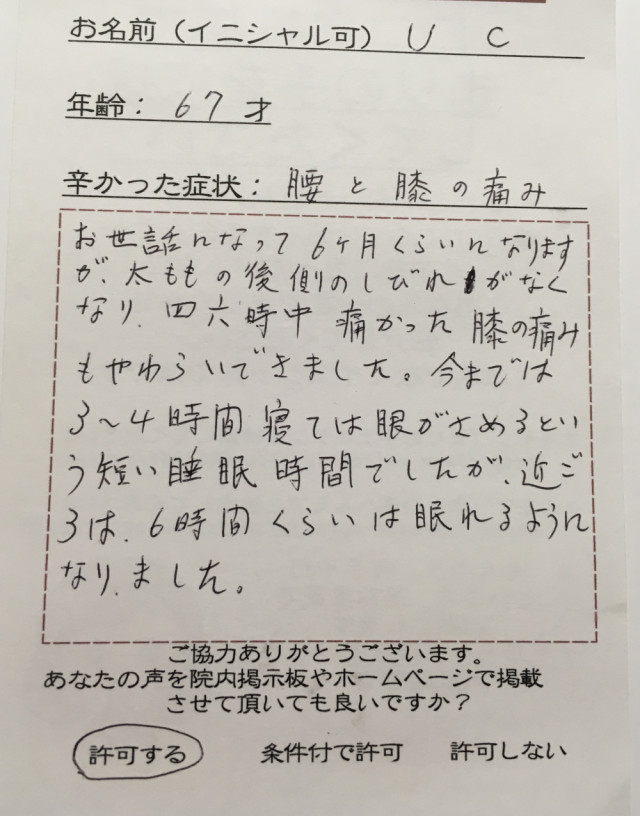 お名前（イニシャル可） U C
年齢：67才
辛かった症状：腰と膝の痛み
お世話になって6ヶ月くらいになります
が、太ももの後側のしびれがなく
なり、四六時中痛かった膝の痛み
もやわらいできました。今までは
3〜4時間寝ては眼がさめるとい
う短い睡眠時間でしたが、近ご
ろは、6時間くらいは眠れるように
なりました。
ご協力ありがとうございます。
あなたの声を院内掲示板やホームページで掲載
させて頂いても良いですか？
許可する 条件付で許可 許可しない